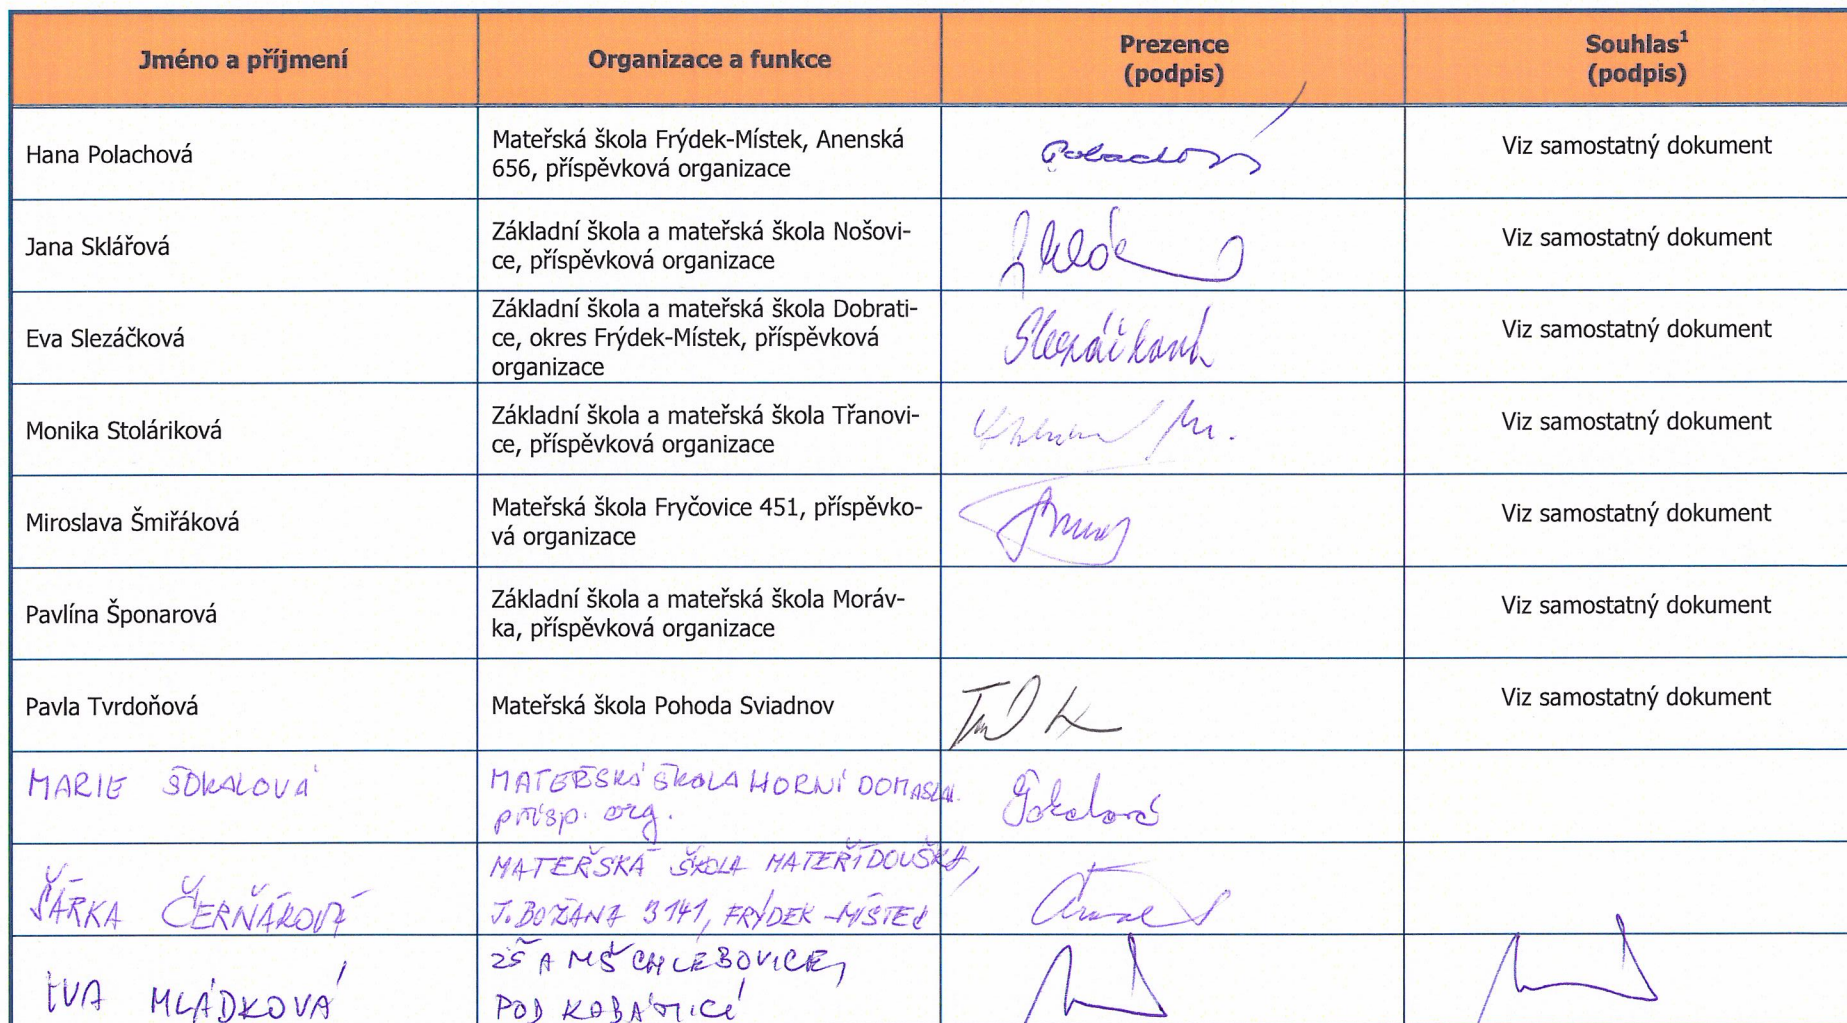 Jméno a příjmení
Organizace a funkce
Prezence
(podpis)
Souhlas¹
(podpis)
Hana Polachová
Mateřská škola Frýdek-Místek, Anenská
656, příspěvková organizace
Polachová
Viz samostatný dokument
Jana Sklářová
Základní škola a mateřská škola Nošovi-
ce, příspěvková organizace
Viz samostatný dokument
Eva Slezáčková
Základní škola a mateřská škola Dobrati-
ce, okres Frýdek-Místek, příspěvková
organizace
Slezáčková
Viz samostatný dokument
Monika Stoláriková
Základní škola a mateřská škola Třanovi-
ce, příspěvková organizace
Viz samostatný dokument
Miroslava Šmiřáková
Mateřská škola Fryčovice 451, příspěvko-
vá organizace
Viz samostatný dokument
Pavlína Šponarová
Základní škola a mateřská škola Moráv-
ka, příspěvková organizace
Viz samostatný dokument
Pavla Tvrdoňová
Mateřská škola Pohoda Sviadnov
Viz samostatný dokument
MARIE ŠOKALOVÁ
MATEŘSKÁ ŠKOLA HORNÍ DOMASLAV.
přísp. org.
Šokalová
ŠÁRKA ČERŇÁKOVÁ
MATEŘSKÁ ŠKOLA MATEŘÍDOUŠKA,
J. BOŽANA 3141, FRÝDEK-MÍSTEK
IVA MLÁDKOVÁ
ZŠ A MŠ CHLEBOVICE,
POD KABÁTICÍ